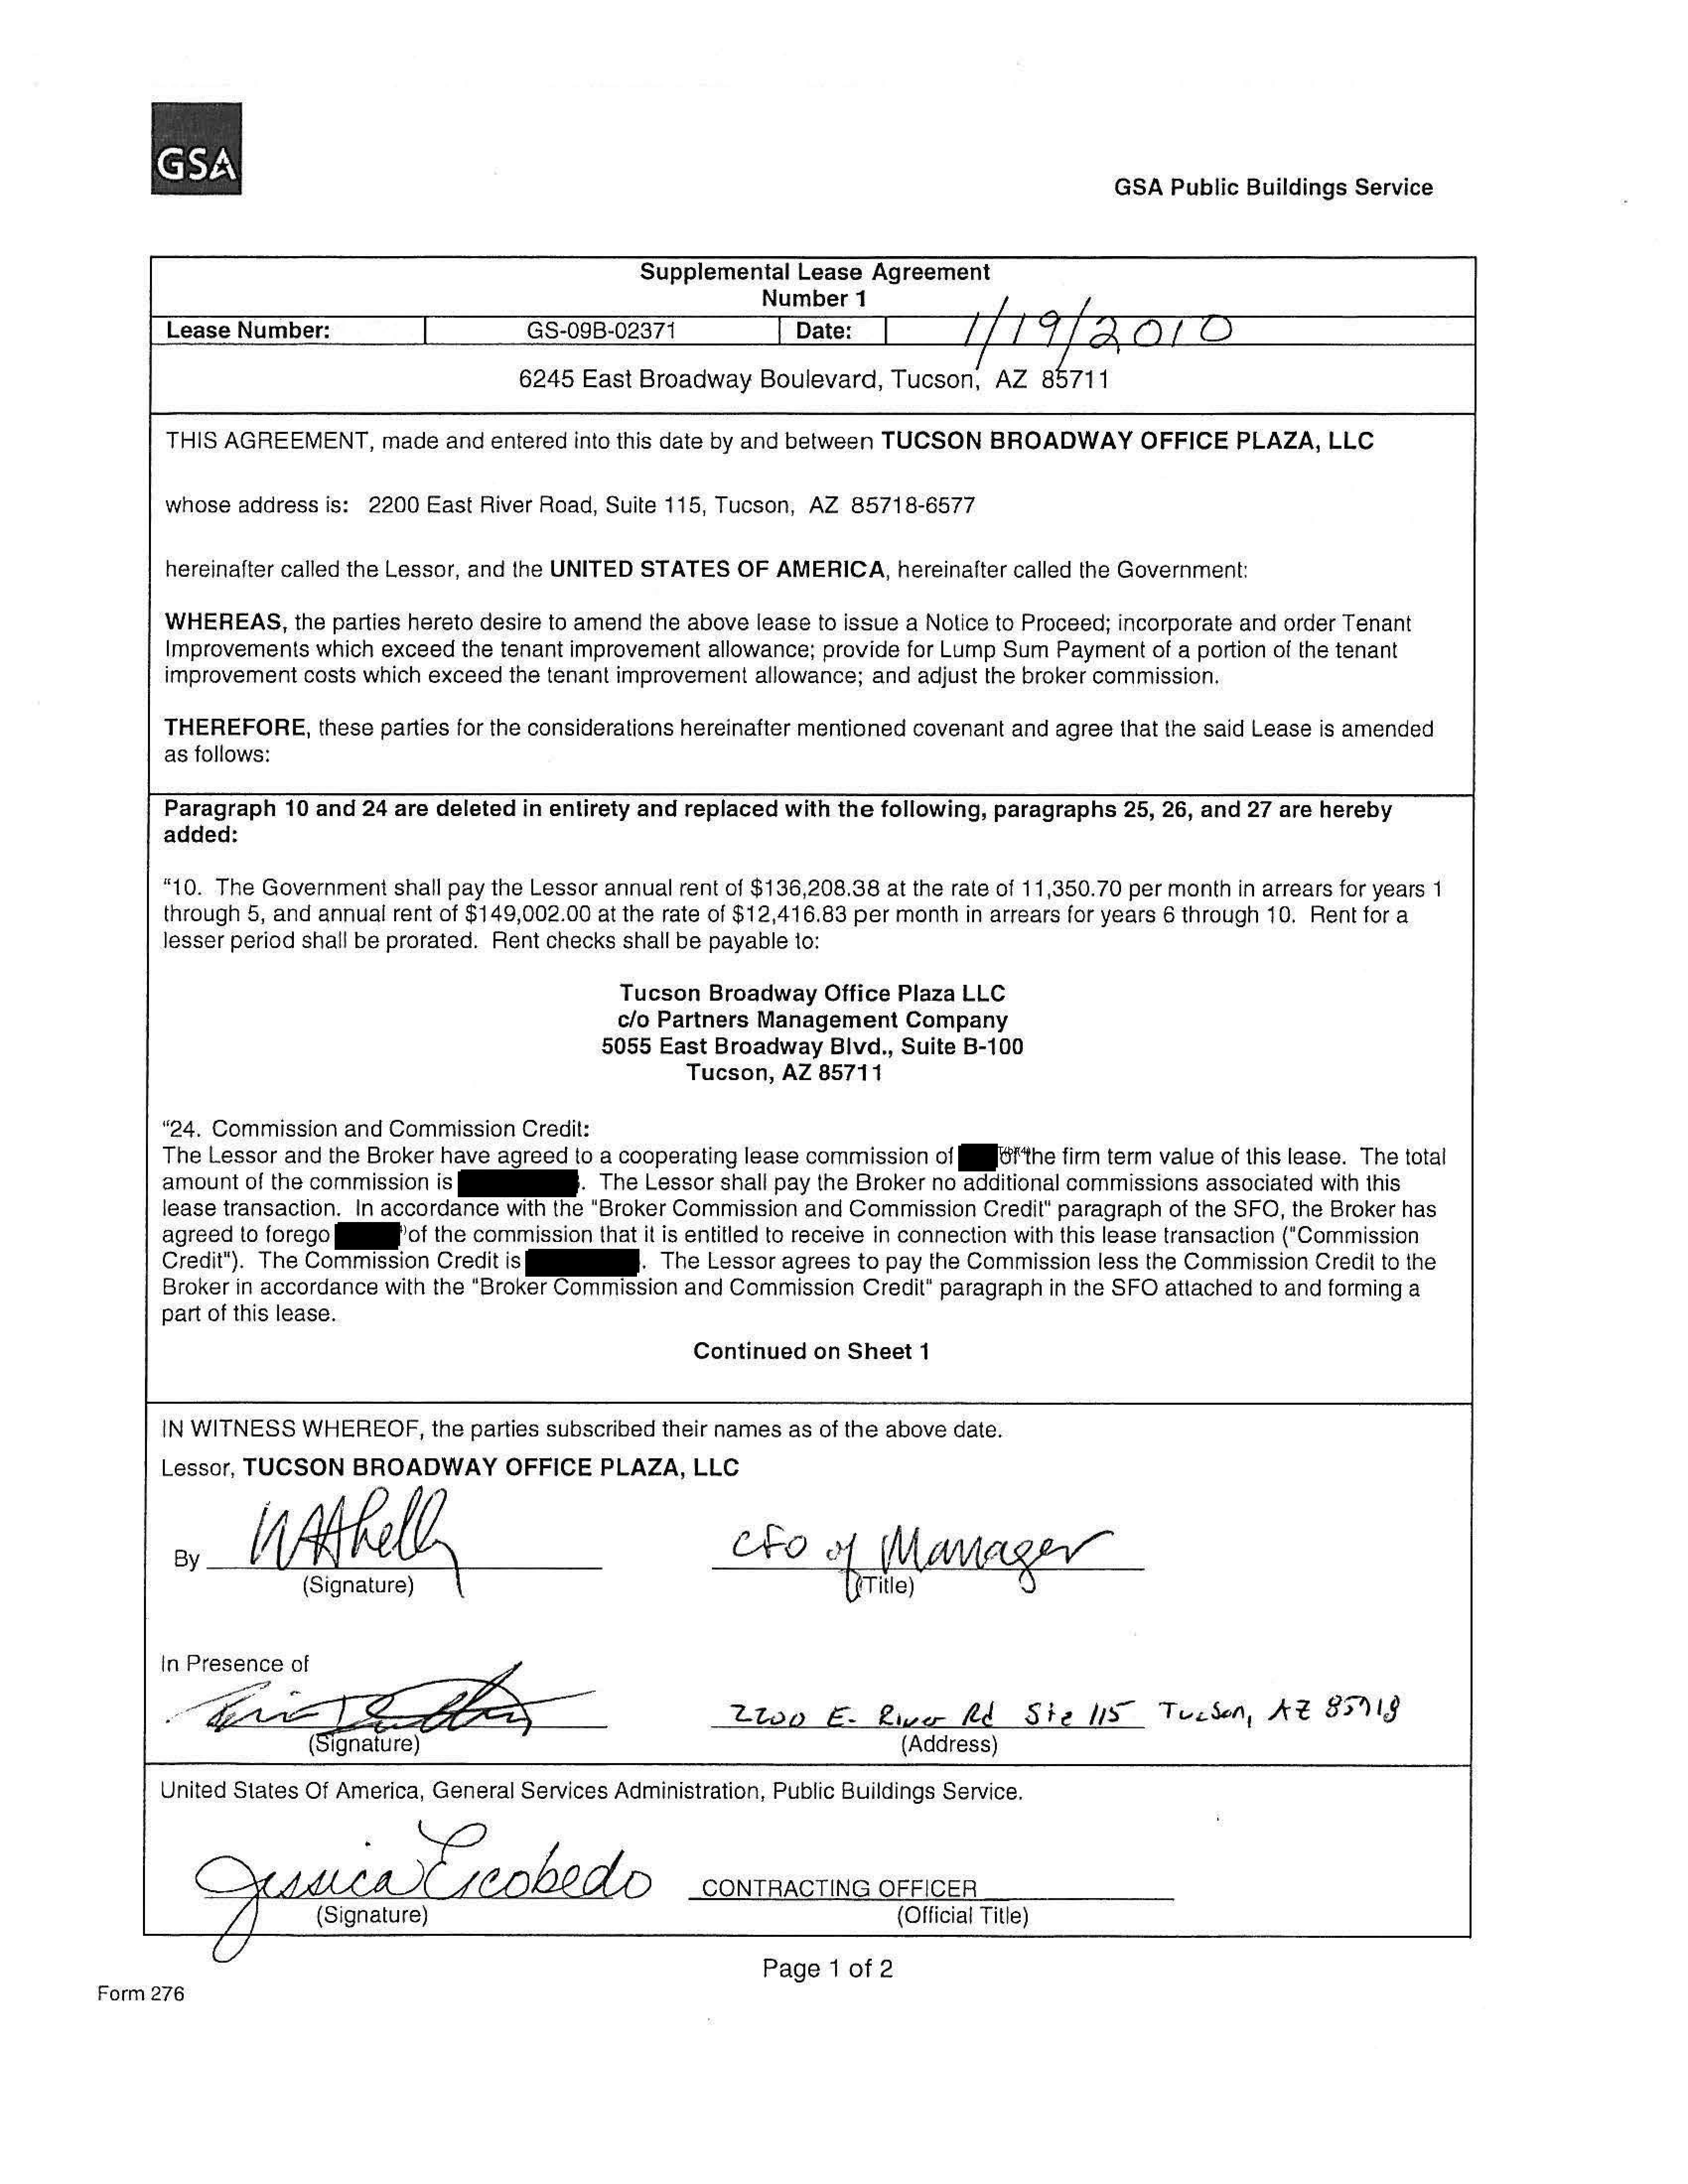 GSA
GSA Public Buildings Service
Supplemental Lease Agreement
Number 1
Lease Number: GS-09B-02371 Date: 1/19/2010
6245 East Broadway Boulevard, Tucson, AZ 85711
THIS AGREEMENT, made and entered into this date by and between TUCSON BROADWAY OFFICE PLAZA, LLC
whose address is: 2200 East River Road, Suite 115, Tucson, AZ 85718-6577
hereinafter called the Lessor, and the UNITED STATES OF AMERICA, hereinafter called the Government:
WHEREAS, the parties hereto desire to amend the above lease to issue a Notice to Proceed; incorporate and order Tenant
Improvements which exceed the tenant improvement allowance; provide for Lump Sum Payment of a portion of the tenant
improvement costs which exceed the tenant improvement allowance; and adjust the broker commission.
THEREFORE, these parties for the considerations hereinafter mentioned covenant and agree that the said Lease is amended
as follows:
Paragraph 10 and 24 are deleted in entirety and replaced with the following, paragraphs 25, 26, and 27 are hereby
added:
"10. The Government shall pay the Lessor annual rent of $136,208.38 at the rate of 11,350.70 per month in arrears for years 1
through 5, and annual rent of $149,002.00 at the rate of $12,416.83 per month in arrears for years 6 through 10. Rent for a
lesser period shall be prorated. Rent checks shall be payable to:
Tucson Broadway Office Plaza LLC
c/o Partners Management Company
5055 East Broadway Blvd., Suite B-100
Tucson, AZ 85711
"24. Commission and Commission Credit:
The Lessor and the Broker have agreed to a cooperating lease commission of of the firm term value of this lease. The total
amount of the commission is . The Lessor shall pay the Broker no additional commissions associated with this
lease transaction. In accordance with the "Broker Commission and Commission Credit" paragraph of the SFO, the Broker has
agreed to forego of the commission that it is entitled to receive in connection with this lease transaction ("Commission
Credit"). The Commission Credit is . The Lessor agrees to pay the Commission less the Commission Credit to the
Broker in accordance with the "Broker Commission and Commission Credit" paragraph in the SFO attached to and forming a
part of this lease.
Continued on Sheet 1
IN WITNESS WHEREOF, the parties subscribed their names as of the above date.
Lessor, TUCSON BROADWAY OFFICE PLAZA, LLC
By CFO of Manager
(Signature) (Title)
In Presence of
2200 E. River Rd Ste 115 Tucson, AZ 85718
(Signature) (Address)
United States Of America, General Services Administration, Public Buildings Service.
Jessica Escobedo CONTRACTING OFFICER
(Signature) (Official Title)
Page 1 of 2
Form 276